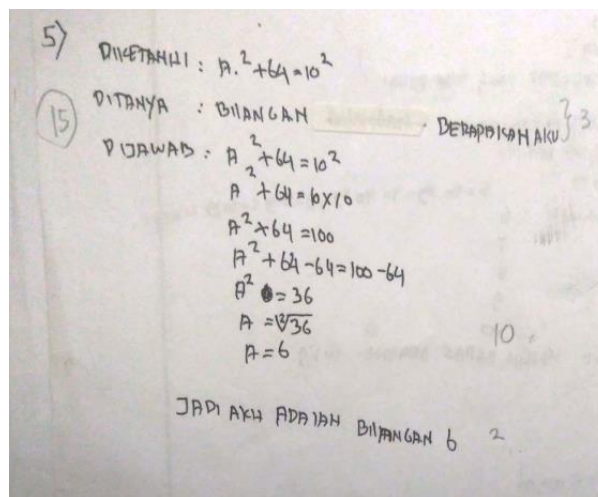 5)
DIKETAHUI : A.² + 64 = 10²
15
DITANYA : BILANGAN . BERAPAKAH AKU } 3
DIJAWAB : A² + 64 = 10²
A² + 64 = 10 x 10
A² + 64 = 100
A² + 64 - 64 = 100 - 64
A² = 36
A = √36
A = 6
10
JADI AKU ADALAH BILANGAN 6 2